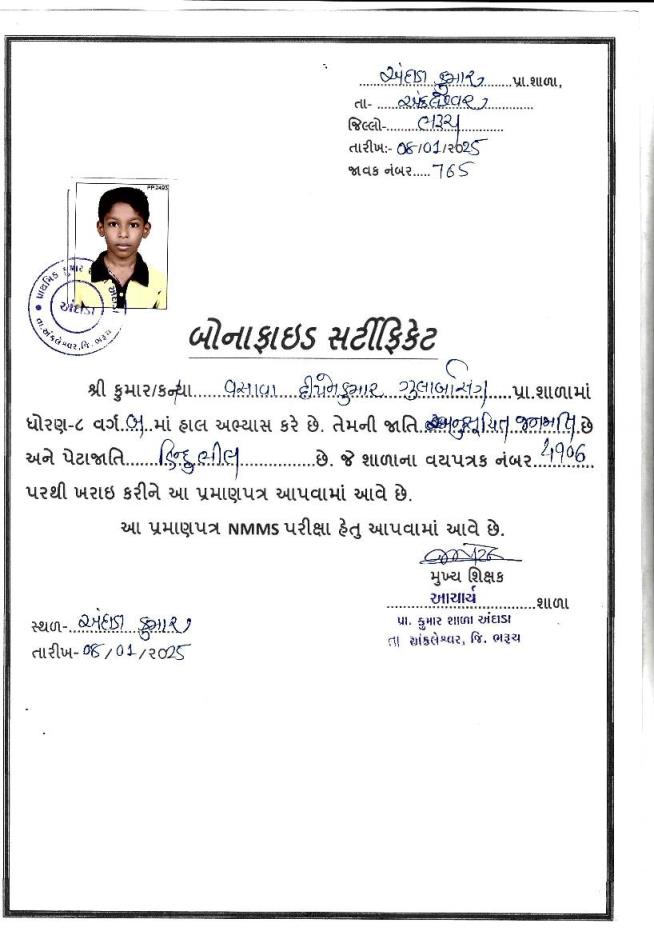 અંદાડા કુમાર પ્રા.શાળા,
તા- અંકલેશ્વર
જિલ્લો- ભરૂચ
તારીખ:- 08/01/૨૦25
જાવક નંબર..... 765
PP 2493
પ્રાથમિક કુમાર શાળા અંદાડા
અંદાડા
તા.અંકલેશ્વર,જિ. ભરૂચ
બોનાફાઇડ સર્ટીફિકેટ
શ્રી કુમાર/કન્યા વસાવા દીપેનકુમાર ગુલાબસિંગ પ્રા.શાળામાં
ધોરણ-૮ વર્ગ બ માં હાલ અભ્યાસ કરે છે. તેમની જાતિ અનુસૂચિત જનજાતિ છે
અને પેટાજાતિ હિન્દુ ભીલ છે. જે શાળાના વયપત્રક નંબર 4906
પરથી ખરાઇ કરીને આ પ્રમાણપત્ર આપવામાં આવે છે.
આ પ્રમાણપત્ર NMMS પરીક્ષા હેતુ આપવામાં આવે છે.
મુખ્ય શિક્ષક
આચાર્ય
શાળા
પ્રા. કુમાર શાળા અંદાડા
તા અંકલેશ્વર, જિ. ભરૂચ
સ્થળ- અંદાડા કુમાર
તારીખ- 08/01/૨૦25